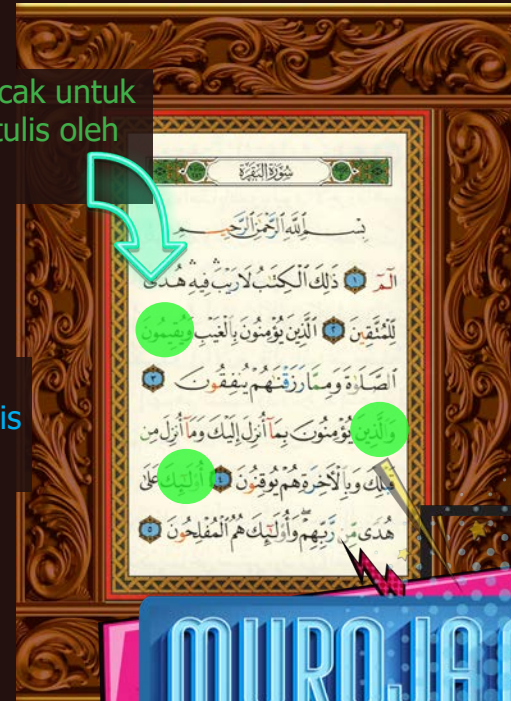 cak untuk
tulis oleh
سُورَةُ البَقَرَةِ
بِسْمِ ٱللَّهِ ٱلرَّحْمَٰنِ ٱلرَّحِيمِ
الٓمٓ ١ ذَٰلِكَ ٱلْكِتَٰبُ لَا رَيْبَ ۛ فِيهِ ۛ هُدًى
لِّلْمُتَّقِينَ ٢ ٱلَّذِينَ يُؤْمِنُونَ بِٱلْغَيْبِ وَيُقِيمُونَ
ٱلصَّلَوٰةَ وَمِمَّا رَزَقْنَٰهُمْ يُنفِقُونَ ٣
is
وَٱلَّذِينَ يُؤْمِنُونَ بِمَآ أُنزِلَ إِلَيْكَ وَمَآ أُنزِلَ مِن
قَبْلِكَ وَبِٱلْءَاخِرَةِ هُمْ يُوقِنُونَ ٤ أُو۟لَٰٓئِكَ عَلَىٰ
هُدًى مِّن رَّبِّهِمْ ۖ وَأُو۟لَٰٓئِكَ هُمُ ٱلْمُفْلِحُونَ ٥
MUROJA